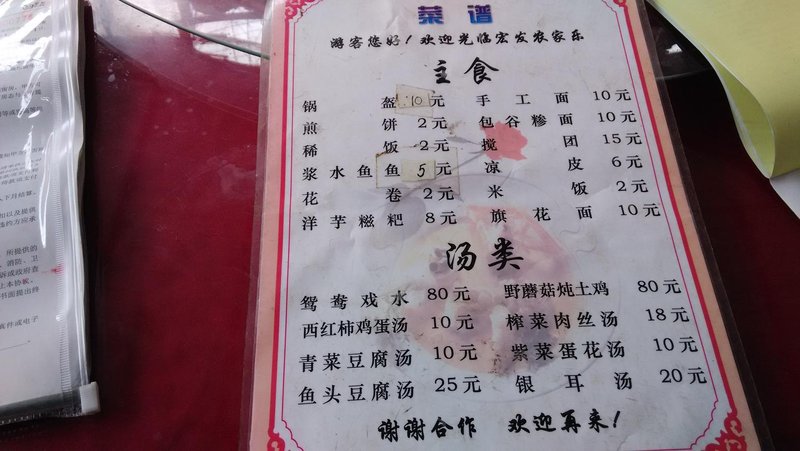 菜谱
游客您好！欢迎光临宏发农家乐
主食
锅盔 10元 手工面 10元
煎饼 2元 包谷糁面 10元
稀饭 2元 搅团 15元
浆水鱼鱼 5元 凉皮 6元
花卷 2元 米饭 2元
洋芋糍粑 8元 旗花面 10元
汤类
鸳鸯戏水 80元 野蘑菇炖土鸡 80元
西红柿鸡蛋汤 10元 榨菜肉丝汤 18元
青菜豆腐汤 10元 紫菜蛋花汤 10元
鱼头豆腐汤 25元 银耳汤 20元
谢谢合作 欢迎再来！